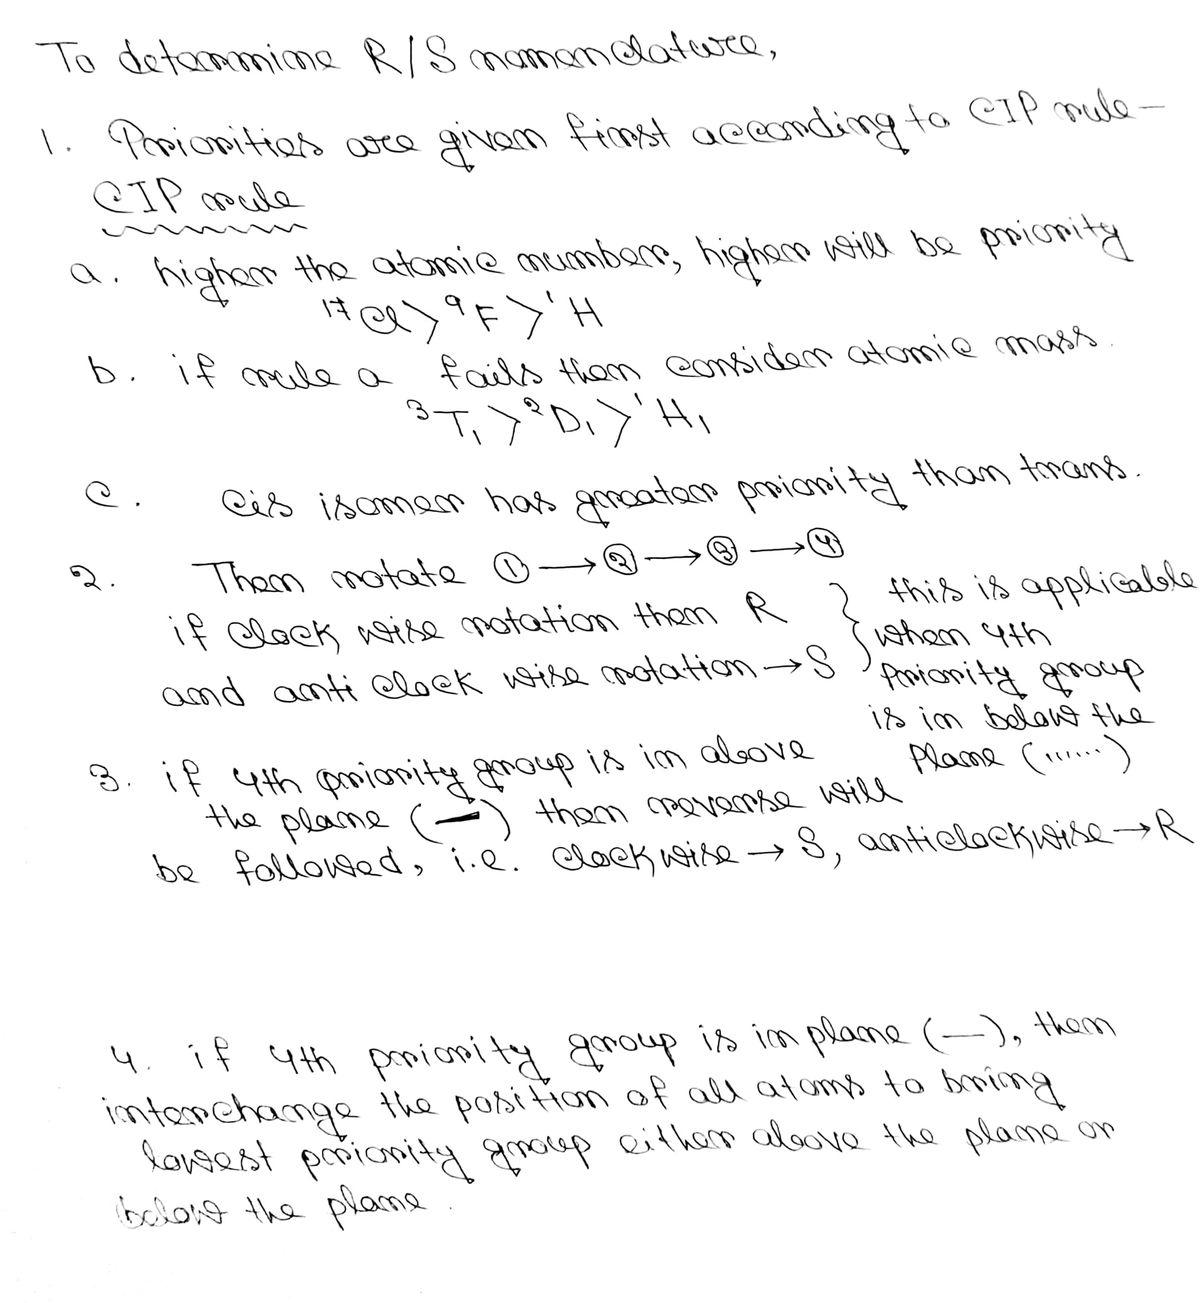 To determine R/S nomenclature,
1. Priorities are given first according to CIP rule-
CIP rule
a. higher the atomic number, higher will be priority
¹⁷Cl > ⁹F > ¹H
b. if rule a fails then consider atomic mass.
³T₁ > ²D₁ > ¹H₁
c. cis isomer has greater priority than trans.
2. Then rotate ① → ② → ③ → ④
if clock wise rotation then R
and anti clock wise rotation → S
} this is applicable
when 4th
priority group
is in below the
plane (......)
3. if 4th priority group is in above
the plane (—) then reverse will
be followed, i.e. clockwise → S, anticlockwise → R
4. if 4th priority group is in plane (—), then
interchange the position of all atoms to bring
lowest priority group either above the plane or
below the plane.